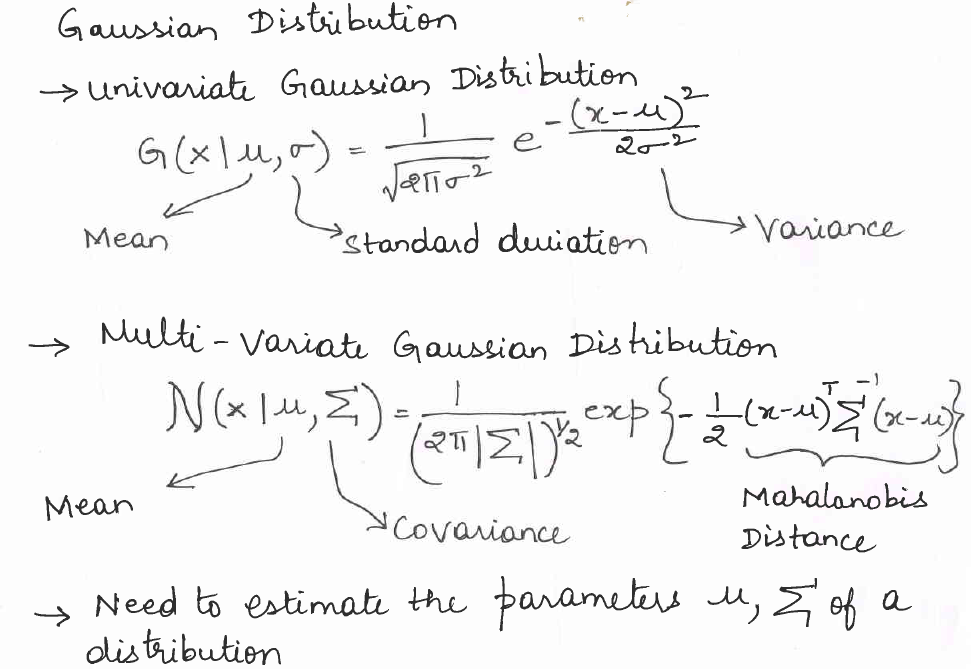 Gaussian Distribution
→ Univariate Gaussian Distribution
G(x|μ,σ) = 1/√(2πσ²) e^(-(x-μ)²/2σ²)
Mean
Standard deviation
Variance
→ Multi-Variate Gaussian Distribution
N(x|μ,Σ) = 1/(2π|Σ|)^(1/2) exp{-1/2 (x-μ)^T Σ^-1 (x-μ)}
Mean
Covariance
Mahalanobis
Distance
→ Need to estimate the parameters μ, Σ of a
distribution